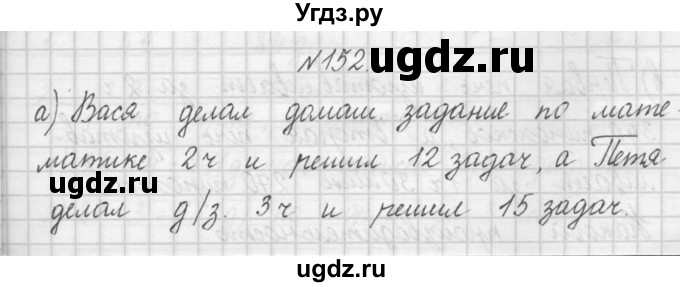 Угдз.ру
№152.
ugdz.ru
а) Вася делал домаш. задание по мате-
матике 2ч и решил 12 задач, а Петя
делал д/з. 3ч и решил 15 задач.
ugdz.ru
ugdz.ru
ugdz.ru